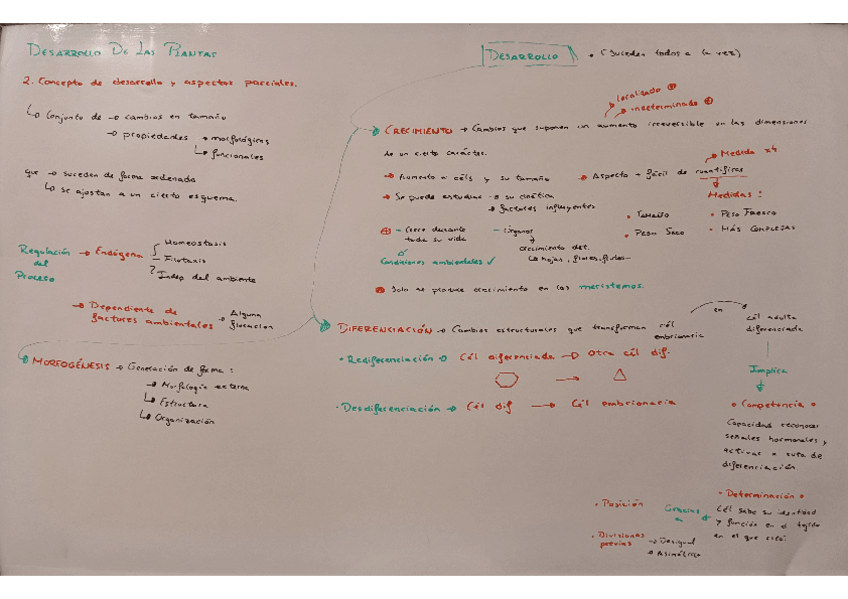 DESARROLLO DE LAS PLANTAS
2. Concepto de desarrollo y aspectos parciales.
↳ Conjunto de → cambios en tamaño
→ propiedades → morfológicas
↳ funcionales
que → suceden de forma ordenada
↳ se ajustan a un cierto esquema.
Regulación del Proceso → Endógena
Homeostasis
Filotaxis
? Indep del ambiente
→ Dependiente de factores ambientales → Alguna
MORFOGÉNESIS → Generación de forma:
→ Morfología externa
↳ Estructura
↳ Organización
DESARROLLO • (Suceden todos a la vez)
localizado
indeterminado
CRECIMIENTO → Cambios que suponen un aumento irreversible en las dimensiones
de un cierto carácter.
→ Aumento n céls y su tamaño → Aspecto + fácil de cuantificar
→ Medida x4
→ Se puede estudiar → su cinética
→ factores influyentes
Medidas:
• TAMAÑO • PESO FRESCO
• PESO SECO • MÁS COMPLEJAS
– Crece durante toda su vida
– órganos
crecimiento det.
↳ hojas, flores, frutos
Condiciones ambientales ✓
Solo se produce crecimiento en los meristemos.
DIFERENCIACIÓN → Cambios estructurales que transforman cél embrionaria
en
cél adulta diferenciada
• Rediferenciación → Cél diferenciada → Otra cél dif.
• Desdiferenciación → Cél dif → Cél embrionaria
Implica
• Competencia •
Capacidad reconocer
señales hormonales y
activar ruta de
diferenciación
• Determinación •
Cél sabe su identidad
y función en el tejido
en el que está.
Gracias a
• Posición
• Divisiones previas → Desigual
→ Asimétrica